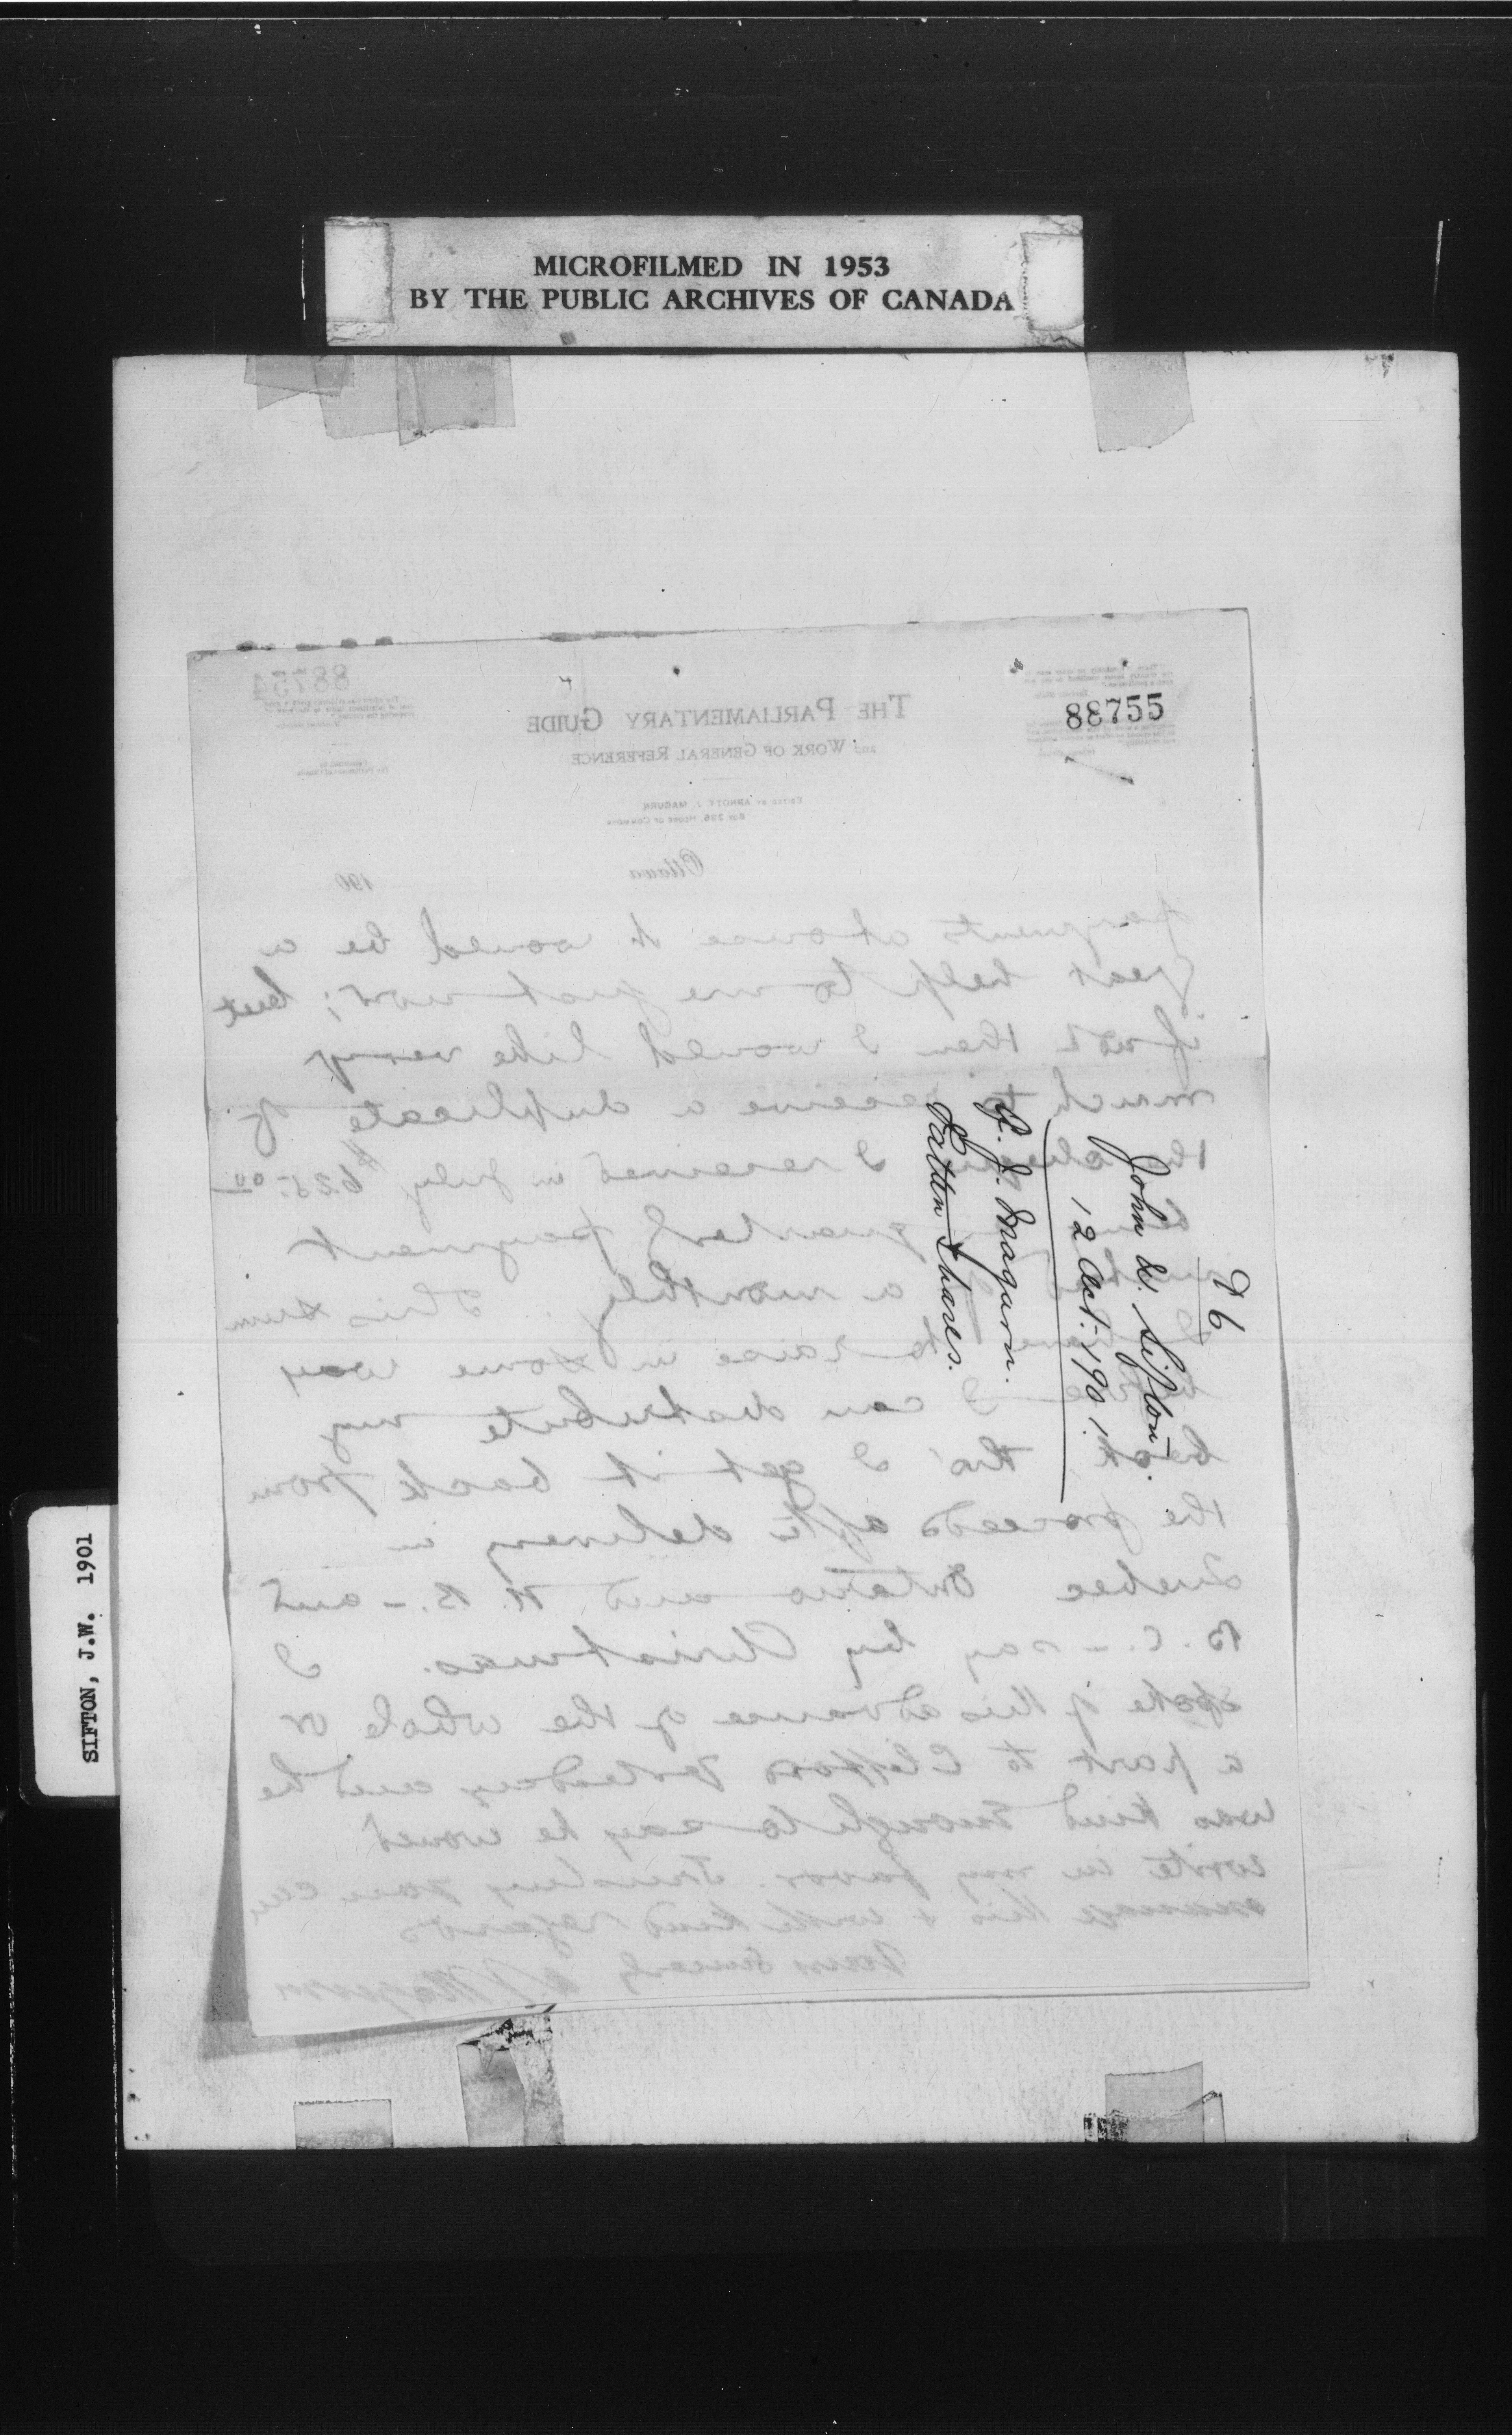 MICROFILMED IN 1953
BY THE PUBLIC ARCHIVES OF CANADA
88755
88754
THE PARLIAMENTARY GUIDE
and WORK OF GENERAL REFERENCE
EDITED BY ARNOTT J. MAGURN
BOX 226, HOUSE OF COMMONS
Ottawa 190
payments at once it would be a
great help to me just now; but
if not then I would like very
much to receive a duplicate of
the cheque I received in July $625.00
payment
a monthly. This sum
to raise in some way
I can distribute my
book, tho' I get it back from
the proceeds after delivery in
Quebec Ontario and N. B. - and
B. C. - say by Christmas. I
spoke of this advance of the whole or
a part to Clifford yesterday and he
was kind enough to say he would
write in my favor. Trusting you can
manage this & with kind regards
Yours sincerely
A J Magurn
96
John W. Sifton.
12 Oct. 1901.
A. J. Magurn.
Patten Shares.
SIFTON, J.W. 1901